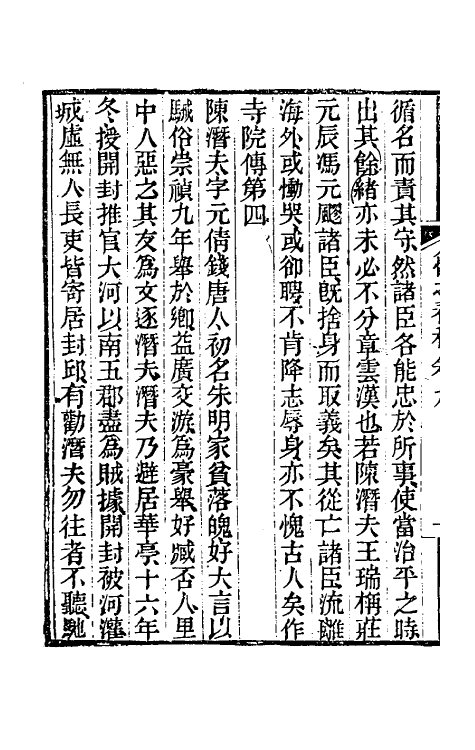 循名而責其守然諸臣各能忠於所事使當治平之時
出其餘緒亦未必不分章雲漢也若陳潛夫王瑞栴莊
元辰馮元颷諸臣旣捨身而取義矣其從亡諸臣流離
海外或慟哭或卻聘不肯降志辱身亦不愧古人矣作
寺院傳第四
陳潛夫字元倩錢唐人初名朱明家貧落魄好大言以
駴俗崇禎九年舉於鄉益廣交游爲豪舉好臧否人里
中人惡之其友爲文逐潛夫潛夫乃避居華亭十六年
冬授開封推官大河以南五郡盡爲賊據開封被河灌
城虛無人長吏皆寄居封邱有勸潛夫勿往者不聽馳